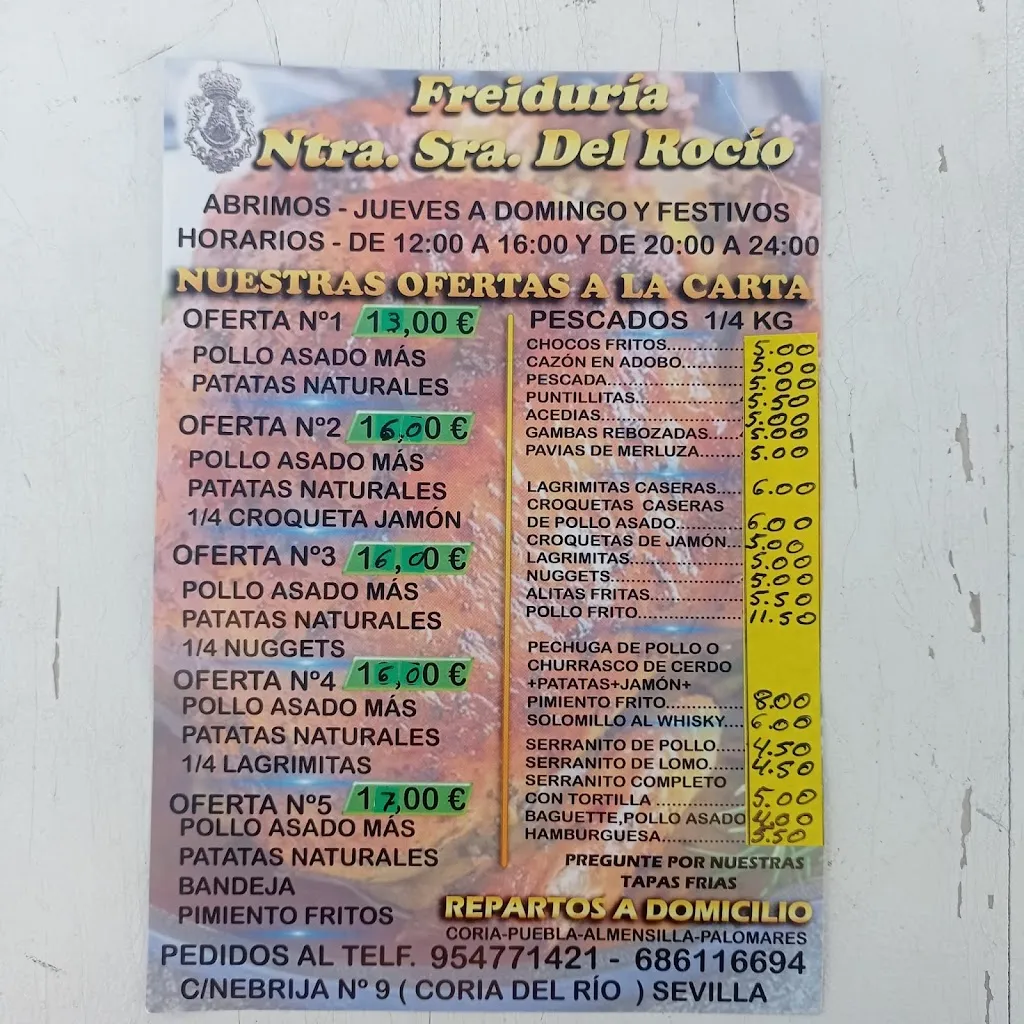 Freiduría
Ntra. Sra. Del Rocío
ABRIMOS - JUEVES A DOMINGO Y FESTIVOS
HORARIOS - DE 12:00 A 16:00 Y DE 20:00 A 24:00
NUESTRAS OFERTAS A LA CARTA
OFERTA Nº1 13,00 €
POLLO ASADO MÁS
PATATAS NATURALES
OFERTA Nº2 16,00 €
POLLO ASADO MÁS
PATATAS NATURALES
1/4 CROQUETA JAMÓN
OFERTA Nº3 16,00 €
POLLO ASADO MÁS
PATATAS NATURALES
1/4 NUGGETS
OFERTA Nº4 16,00 €
POLLO ASADO MÁS
PATATAS NATURALES
1/4 LAGRIMITAS
OFERTA Nº5 17,00 €
POLLO ASADO MÁS
PATATAS NATURALES
BANDEJA
PIMIENTO FRITOS
PESCADOS 1/4 KG
CHOCOS FRITOS 5.00
CAZÓN EN ADOBO 5.00
PESCADA 5.00
PUNTILLITAS 5.50
ACEDIAS 5.00
GAMBAS REBOZADAS 5.00
PAVIAS DE MERLUZA 5.00
LAGRIMITAS CASERAS 6.00
CROQUETAS CASERAS
DE POLLO ASADO 6.00
CROQUETAS DE JAMÓN 5.00
LAGRIMITAS 5.00
NUGGETS 5.00
ALITAS FRITAS 5.50
POLLO FRITO 11.50
PECHUGA DE POLLO O
CHURRASCO DE CERDO
+PATATAS+JAMÓN+
PIMIENTO FRITO 8.00
SOLOMILLO AL WHISKY 6.00
SERRANITO DE POLLO 4.50
SERRANITO DE LOMO 4.50
SERRANITO COMPLETO
CON TORTILLA 5.00
BAGUETTE,POLLO ASADO 4.00
HAMBURGUESA 3.50
PREGUNTE POR NUESTRAS
TAPAS FRIAS
REPARTOS A DOMICILIO
CORIA-PUEBLA-ALMENSILLA-PALOMARES
PEDIDOS AL TELF. 954771421 - 686116694
C/NEBRIJA Nº 9 ( CORIA DEL RÍO ) SEVILLA